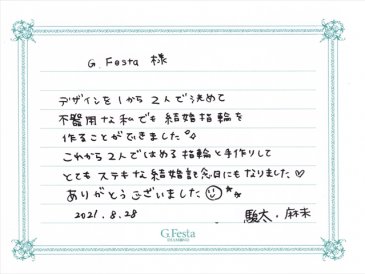 G.Festa 様
デザインを1から2人で決めて
不器用な私でも結婚指輪を
作ることができました
これから2人ではめる指輪を手作りして
とても ステキな結婚記念日にもなりました♡
ありがとうございました
2021.8.28 駿太・麻未
G.Festa